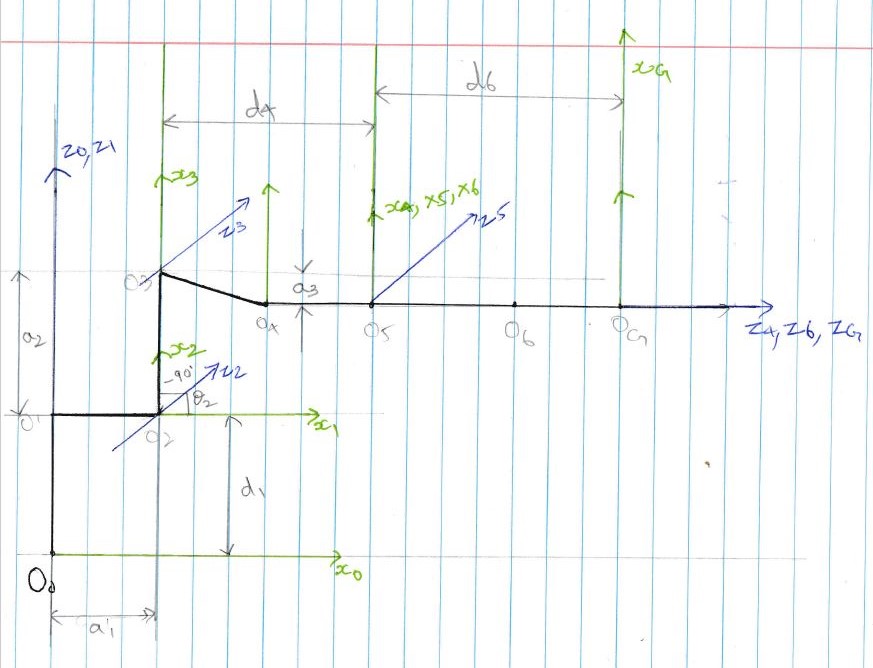 xG
d6
d4
z0,z1
x3
x4, x5, x6
z5
z3
O3
a3
O4
O5
O6
OG
z4, z6, zG
a2
x2
-90°
z2
θ2
O1
O2
x1
d1
O0
x0
a1